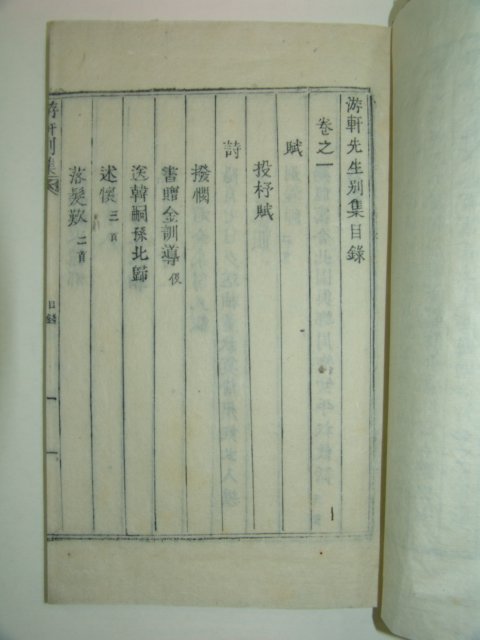 游軒先生別集目錄
卷之一
賦
投杼賦
詩
撥憫
書贈金訓導 俊
送韓嗣孫北歸
述懷 三首
落髮歎 二首
游軒別集
目錄
一